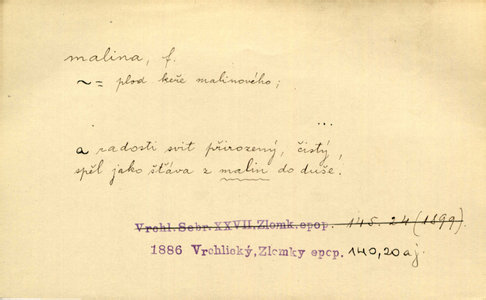 malina, f.
~ = plod keře malinového;
...
a radosti svit přirozený, čistý,
spěl jako šťáva z malin do duše.
Vrchl. Sebr. XXVII, Zlomk. epop. 145. 24 (1899).
1886 Vrchlický, Zlomky epop. 140,20 aj.